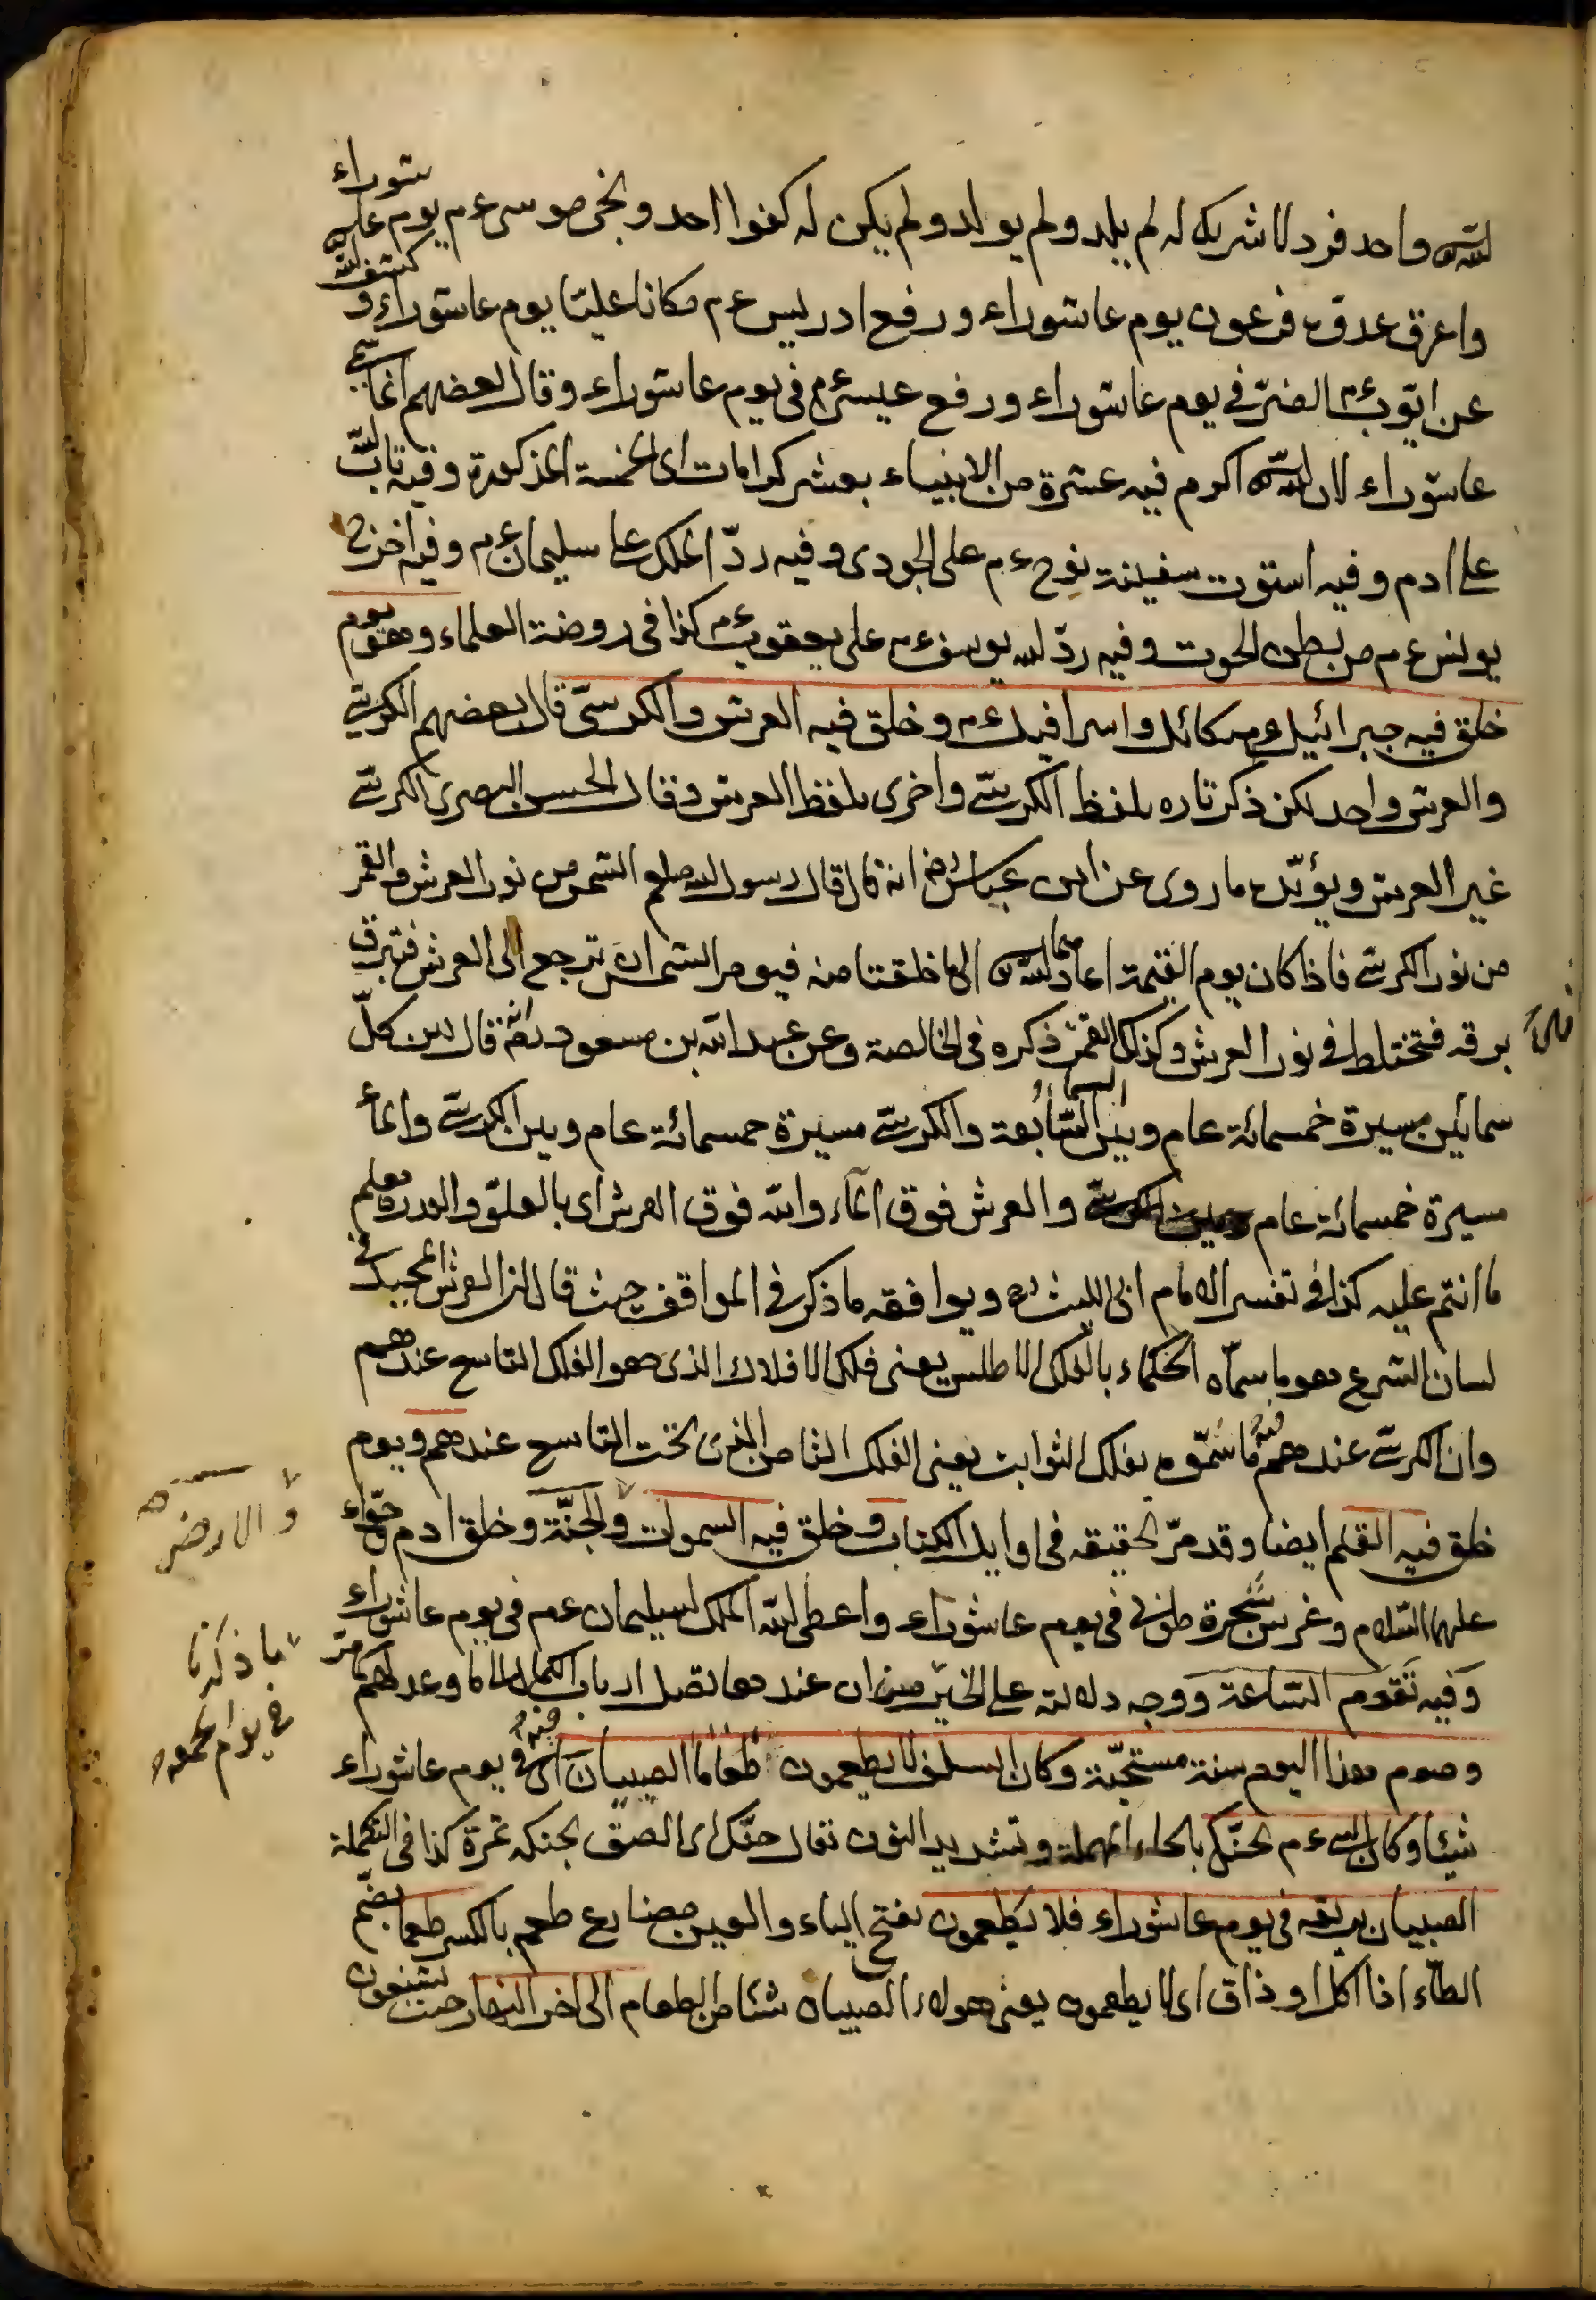 الله واحد فرد لا شريك له لم يلد ولم يولد ولم يكن له كفوا احد ونجى موسى ع م يوم عاشوراء
واغرق عدوه فرعون يوم عاشوراء ورفع ادريس ع م مكانا عليّا يوم عاشوراء وكشف الله
عن ايّوب ع م الضرّ في يوم عاشوراء ورفع عيسى ع م في يوم عاشوراء وقال بعضهم انما سمى
عاشوراء لان الله اكرم فيه عشرة من الانبياء بعشر كرامات اى الخمسة المذكورة وفيه تاب الله
على ادم وفيه استوت سفينة نوح ع م على الجودى وفيه ردّ الملك على سليمان ع م وفيه اخرج
يونس ع م من بطن الحوت وفيه ردّ الله يوسف ع م على يعقوب ع م كذا فى روضة العلماء وهو يوم
خلق فيه جبرائيل وميكائل واسرافيل ع م وخلق فيه العرش والكرسىّ قال بعضهم الكرسىّ
والعرش واحد لكن ذكر تاره بلفظ الكرسىّ واخرى بلفظ العرش وقال الحسن البصرى الكرسىّ
غير العرش ويؤيّده ما روى عن ابن عباس رض انه قال قال رسول الله صلعم الشمس من نور العرش والقمر
من نور الكرسىّ فاذا كان يوم القيمة اعادهما الله الى ما خلقتا منه فيومر الشمس ان ترجع الى العرش فتبرق
برقه فتختلط فى نور العرش وكذلك القمر ذكره فى الخالصة وعن عبد الله بن مسعود رض انه قال بين كلّ
سمائين مسيرة خمسمائة عام وبين السماء السّابعة والكرسىّ مسيرة خمسمائة عام وبين الكرسىّ والماء
مسيرة خمسمائة عام والعرش فوق الماء والله فوق العرش اى بالعلوّ والقدرة يعلم
ما انتم عليه كذا فى تفسير الامام ابى الليث رح ويوافقه ما ذكر فى المواقف حيث قال ان العرش المجيد فى
لسان الشرع هو ما سمّاه الحكماء بالفلك الاطلس يعنى فلك الافلاك الذى هو الفلك التاسع عندهم
وان الكرسىّ عندهم ما سمّوه بفلك الثوابت يعنى الفلك الثامن الذى تحت التاسع عندهم ويوم
خلق فيه القلم ايضا وقد مرّ تحقيقه فى اوايل الكتاب وخلق فيه السموات والجنّة وخلق ادم وحوّاء
والارض
عليهما السّلام وغرس شجرة طوبى فى يوم عاشوراء واعطى الله الملك لسليمان ع م فى يوم عاشوراء
وفيه تقوم السّاعة ووجه دلالته على الخير من ان عندها تصل ارباب الكمال الى ما وعد لهم كما مرّ
ما ذكرنا
فى يوم الجمعه
وصوم هذا اليوم سنة مستحبّة وكان السلف لا يطعمون طعاما الصبيان فيه اى فى يوم عاشوراء
شيئا وكان النبى ع م يحنّك بالحاء المهملة وتشديد النون يقال حنّك اى الصق بحنكه تمرة كذا فى التكملة
الصبيان بريقه فى يوم عاشوراء فلا يطعمون بفتح الياء والعين مضارع طعم بالكسر طعما بضمّ
الطّاء اذا اكل او ذاق اى لا يطعمون يعنى هولاء الصبيان شئا من الطعام الى اخر النهار حيث يشبعون